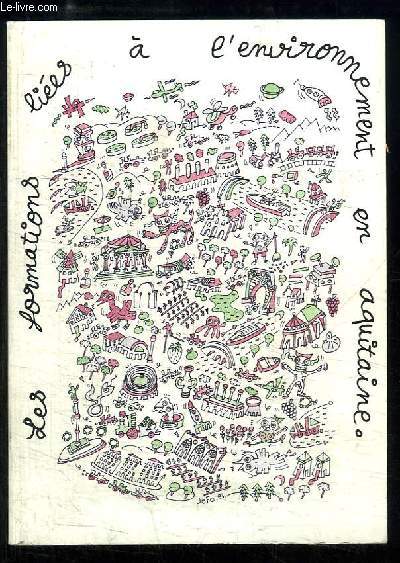 © Le-livre.com
Les formations liées à l'environnement en aquitaine.